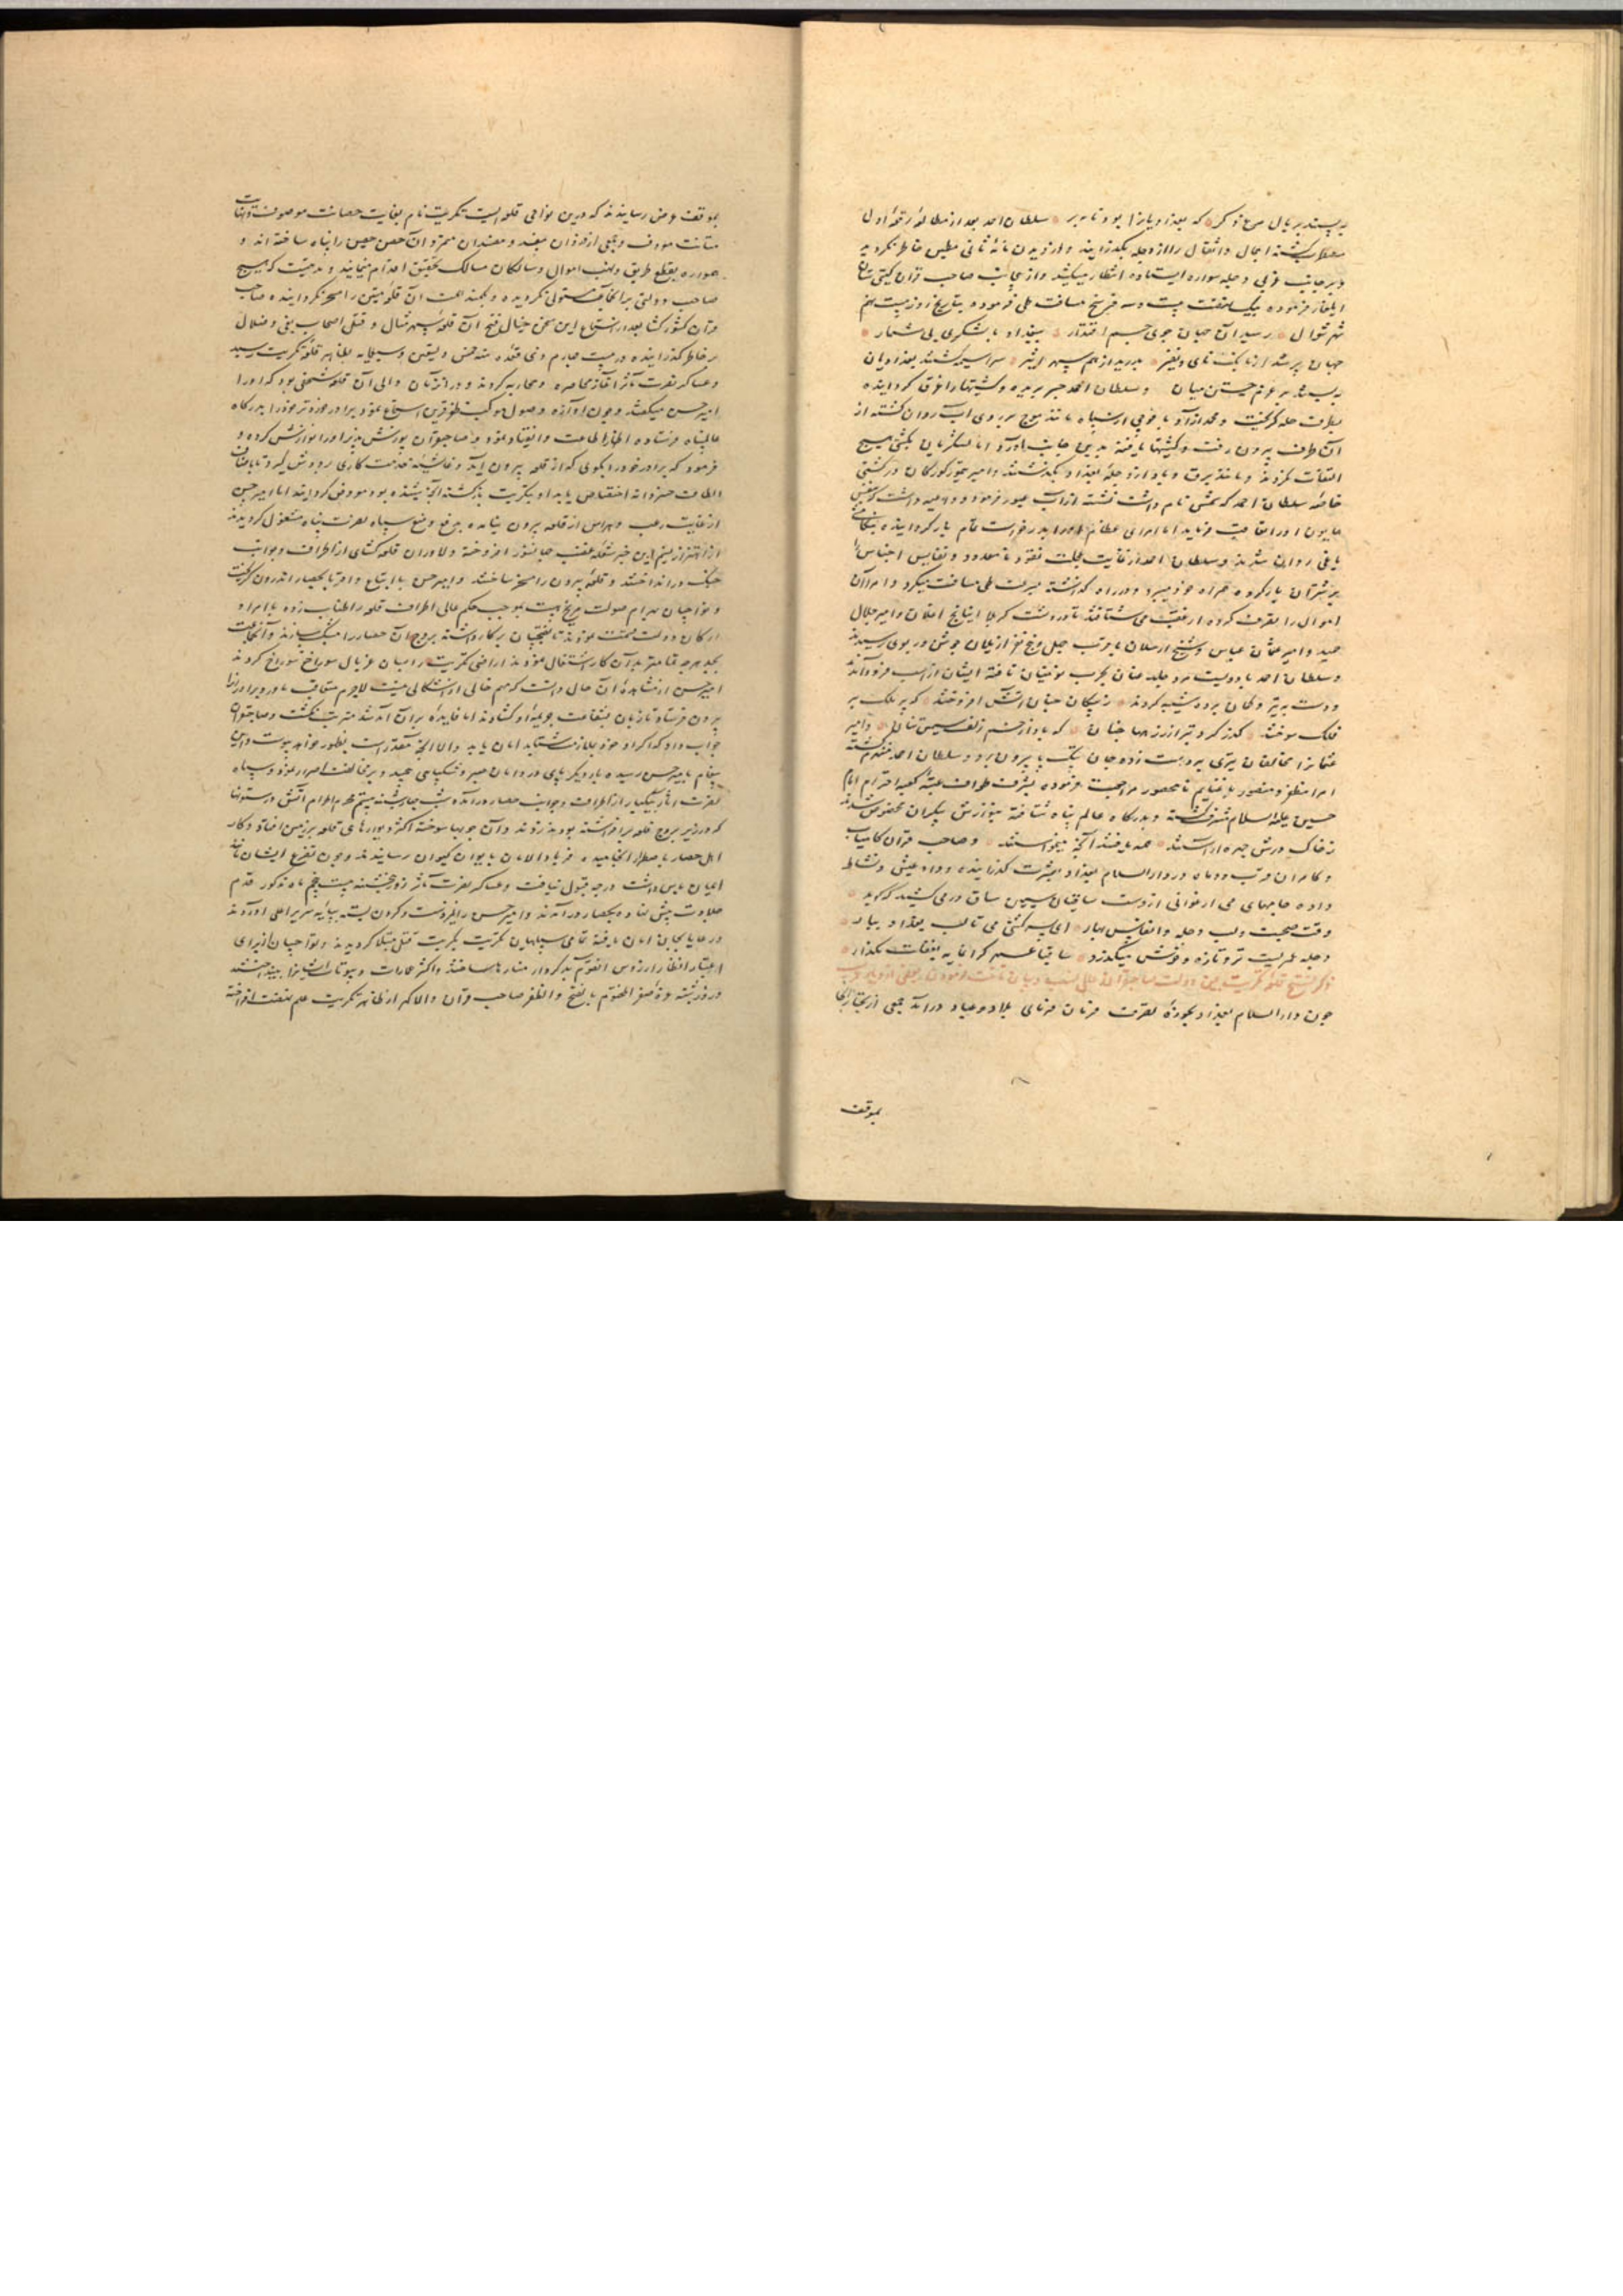 به بستند بر بال مرغ دگر که بغداد یانرا بود نامه بر سلطان احمد بعد از مطالعه رقعه اول
مضطرب گشته احمال و اثقال را از دجله بگذرانید و از دیدن نامه ثانی مطمئن خاطر نگردید
و بر جانب غربی دجله سواره ایستاده انتظار میکشید و از آنجانب صاحب قران گیتی ستان
ایلغار فرموده بیک نهضت بیست و سه فرسخ مسافت طی فرموده بتاریخ روز بیست نهم
شهر شوال رسید آن جهان جوی جم اقتدار ببغداد با لشکری بی شمار
جهان پر شد از بانگ نای و نفیر بدرید از هم سپهر اثیر سراسیمه گشتند بغدادیان
به بستند بر عزم جستن میان و سلطان احمد جسر بریده و کشتیها را غرق گردانیده
بطرف حله گریخت و محمد آزاد با فوجی از سپاه مانند موج بر روی آب روان گشته از
آن طرف بیرون رفت و کشتیها یافته بدین جانب آورد اما لشکریان بکشتی هیچ
التفات نکردند و مانند برق و باد از دجله بغداد بگذشتند و امیر تیمور کورکان در کشتی
خاصه سلطان احمد که شمس نام داشت نشسته از آب عبور فرمود و داعیه داشت که بنفس
همایون او را تعاقب فرماید اما امرای عظام او را بدرخواست تمام باز گردانیده بتکامشی
یاغی روان شدند و سلطان احمد از غایت عجلت نقود نامعدود و نفایس اجناس را
بر شتران بار کرده همراه خود میبرد و در راه گذاشته بسرعت طی مسافت میکرد و امرا آن
اموال را تصرف کرده از عقب می شتافتند تا در دشت کربلا ایناج اغلان و امیر جلال
حمید و امیر عثمان عباس و شیخ ارسلان با قرب چهل و پنج نفر از یلان جوشن در بوی رسیدند
و سلطان احمد با دویست مرد جلد عنان بحرب موفقان تافته ایشان از اسب فرود آمدند
و دست به تیر و کمان برده شیبه کردند ز پیکان چنان آتش افروختند که پر ملک بر
فلک سوختند گذر کرد تیر از زرهها چنان که باد از خم زلف سیمین تنان و امیر
عثمانرا مخالفان تیری بر دست زده چنان بتک پا بیرون برد و سلطان احمد منهزم گشته
امرا مظفر و منصور با غنایم نامحصور مراجعت فرموده بشرف طواف عتبه کعبه احترام امام
حسین علیه السلام مشرف گشته و بدرگاه عالم پناه شتافته بنوازش بیکران مخصوص شدند
ز خاک درش چهره آراستند همه یافتند آنچه میخواستند و صاحب قران کامیاب
و کامران قرب دو ماه در دارالسلام بغداد بعشرت گذرانیده و داد عیش و نشاط
داده جامهای می ارغوانی از دست ساقیان سیمین ساق در می کشید که گوید
وقت صحبت و لب دجله و انفاس بهار ای پسر کشتی می تا لب بغداد بیار
دجله عمریست تر و تازه و خوش میگذرد ساقیا عمر گرانمایه بغفلت مگذار
ذکر فتح قلعه تکریت بیمن دولت صاحبقران عالی نسب و بیان نهضت فرمودن ببعضی از دیار عرب
چون دارالسلام بغداد بحوزه تصرف فرمان فرمای بلاد و عباد درآمد جمعی از تجار بجا
بموقف
بموقف عرض رسانیدند که درین نواحی قلعه ایست تکریت نام بغایت حصانت موصوف و بنهایت
متانت معروف و جمعی از دزدان مفسد و مفسدان متمرد آن حصن حصین را پناه ساخته اند و
همواره بقطع طریق و نهب اموال و سالکان مسالک تحقیق اقدام مینمایند و مدتیست که هیچ
صاحب دولتی برانجا مستولی نگردیده و کمند همت آن قلعه متین را مسخر نگردانیده صاحب
قران کشور گشا بعد از استماع این سخن خیال فتح آن قلعه سپهر مثال و قتل اصحاب بغی و ضلال
بر خاطر گذرانیده در بیست چهارم ذی قعده سنه خمس و تسعین و سبعمایه بظاهر قلعه تکریت رسید
و عساکر نصرت مآثر آغاز محاصره و محاربه کردند و در آنزمان والی آن قلعه شخصی بود که او را
امیر حسن میگفتند و چون آوازه وصول موکب ظفر قرین استماع نمود برادر خورد تر خود را بدرگاه
عالمپناه فرستاده اظهار اطاعت و انقیاد نمود و صاحبقران پوزش پذیر او را نوازش کرده و
فرمود که برادر خود را بگوی که از قلعه بیرون آید و غاشیه خدمت کاری بر دوش گیرد تا باصناف
الطاف خسروانه اختصاص یابد او بتکریت بازگشته آنچه شنیده بود معروض گردانید اما امیر حسن
از غایت رعب و هراس از قلعه بیرون نیامده بدفع و منع سپاه نصرت پناه مشغول گردیدند
از اهتزاز نسیم این خبر شعله غضب جهانسوز افروخته دلاوران قلعه گشای از اطراف و جوانب
جنگ در انداختند و قلعه بیرون را مسخر ساختند و امیر حسن با اتباع و اقربا بحصار اندرون گریخت
و تواجیان بهرام صولت مریخ هیبت بموجب حکم عالی اطراف قلعه را طناب زده بامرا و
ارکان دولت قسمت نمودند تا نقبچیان بر کار داشته بروج آن حصار را مشبک سازند و آنجماعت
بجد هرچه تمامتر بدان کار اشتغال نمودند اراضی تکریت را بسان غربال سوراخ سوراخ کردند
امیر حسن از مشاهده آن حالی دانست که مهم خالی از اشکالی نیست لاجرم متعاقب مادر و برادر را
بیرون فرستاد تا زبان بشفاعت جریمه او گشادند اما فایده بران آمد شد مترتب نگشت و صاحبقران
جواب داد که اگر او خود بملازمت شتابد امان یابد والا آنچه مقدر است بظهور خواهد پیوست و این
پیغام بامیر حسن رسیده بار دیگر پای در دامان صبر و شکیبایی پیچید و بر مخالفت اصرار نمود و سپاه
نصرت آثار بیکبار از اطراف و جوانب حصار درآمده شب چهارشنبه بیستم محرم الحرام آتش در ستونها
که در زیر بروج قلعه برافراشته بودند زدند و آن چوبها سوخته اکثر دیوارهای قلعه بر زمین افتاد و کار
اهل حصار باضطرار انجامیده فریاد الامان بایوان کیوان رسانیدند و چون تضرع ایشان مانند
ایمان یاس داشت درجه قبول نیافت و عساکر نصرت مآثر روز پنجشنبه بیست پنجم ماه مذکور قدم
جلادت پیش نهاده بحصار درآمدند و امیر حسن را بفروتنی دست و گردن بسته بپایه سریر اعلی آوردند
و رعایا بجان امان یافته تمامی سپاهیان تکریت بکربت قتل مبتلا گردیدند و تواجیان از برای
اعتبار انظار از رؤس القوم بد کردار منارها ساختند و اکثر عمارات و بیوتات ایشانرا بینداختند
و روز شنبه غره صفر المختوم بالفتح والظفر صاحب قران والا گهر از ظاهر تکریت علم نهضت افراخته